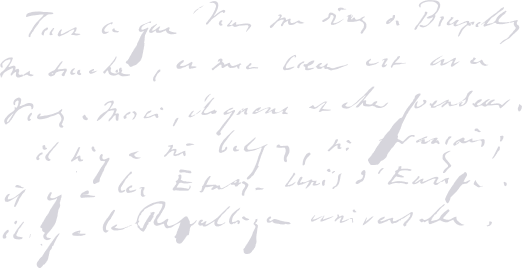 Tout ce que vous me dites de Bruxelles
me touche, et mon cœur est avec
vous. Merci, éloquent et cher penseur.
il n'y a ni belges, ni français;
il y a les États-Unis d'Europe.
il y a la République universelle.